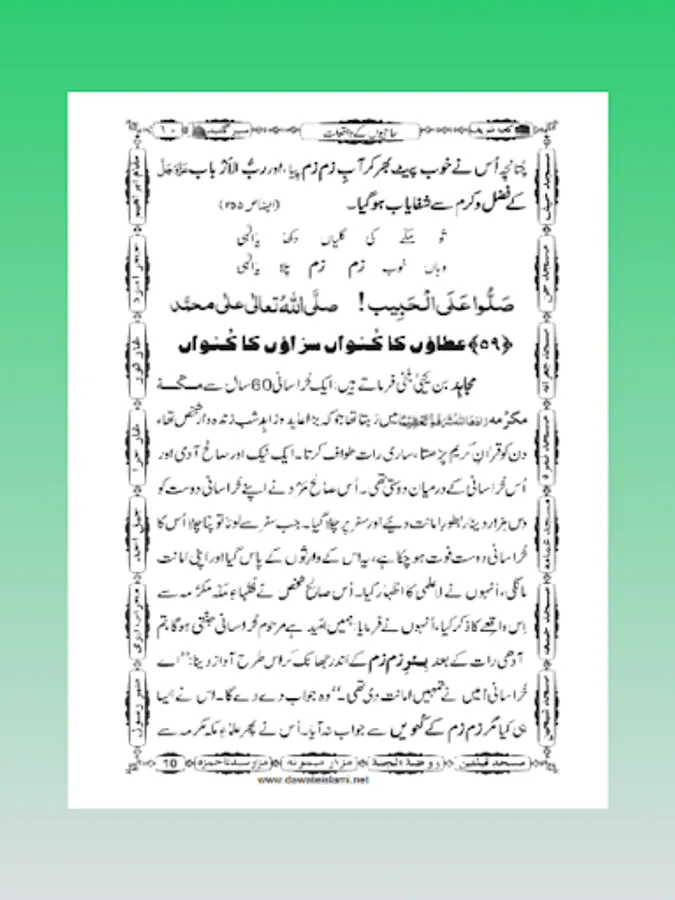 ۱۰ سبز گنبد حاجیوں کے واقعات کعبۂ شریف
چُنانچِہ اُس نے خوب پیٹ بھر کر آبِ زم زم پیا، اور ربُّ الْاَرْباب عَزَّوَجَلَّ
کے فضل و کرم سے شِفایاب ہو گیا۔ (ایضاً ص ۲۵۵)
تُو مکے کی گلیاں دکھا یاالٰہی
وہاں خوب زم زم پلا یاالٰہی
صَلُّوا عَلَی الْحَبِیب! صلَّی اللہُ تعالٰی علٰی محمَّد
﴿۵۹﴾ عطاؤں کا کُنواں سزاؤں کا کُنواں
مجاہِد بن یحییٰ بَلخی فرماتے ہیں: ایک خُراسانی 60 سال سے مکّۂ
مکرَّمہ زَادَھَااللہُ شَرَفًاوَّتَعْظِیْمًا میں رَہتا تھا جو کہ بڑا عابِد و زاہِد شب زندہ دار شخص تھا،
دن کو قراٰنِ کریم پڑھتا، ساری رات طواف کرتا۔ ایک نیک اور صالح آدمی اور
اُس خُراسانی کے درمیان دوستی تھی۔ اُس صالح مَرد نے اپنے خُراسانی دوست کو
دس ہزار دینار بطورِ امانت دئیے اور سفر پر چلا گیا۔ جب سفر سے لوٹا تو پتا چلا اُس کا
خُراسانی دوست فوت ہو چکا ہے، یہ اُس کے وارِثوں کے پاس گیا اور اپنی امانت
مانگی، اُنہوں نے لاعلمی کا اظہار کیا۔ اُس صالح شخص نے فُقَہاءِ مکّۂ مکرَّمہ سے
اِس واقِعے کا ذکر کیا، اُنہوں نے فرمایا: ہمیں اُمّید ہے مرحوم خُراسانی جنّتی ہوگا، تم
آدھی رات کے بعد بِئرِ زم زم کے اندر جھانک کر اس طرح آواز دینا: ’’اے
خُراسانی! میں نے تمہیں امانت دی تھی۔‘‘ وہ جواب دے دے گا۔ اس نے ایسا
ہی کیا مگر زم زم کے کُنویں سے جواب نہ آیا۔ اُس نے پھر علماءِ مکہ مکرمہ سے
مقامِ ابراہیم
حجرِ اسود
غارِ ثور
غارِ حرا
جبلِ احد
محرابِ نبوی
منبرِ رسول
مسجدِ خیف
مسجدِ جن
مسجدِ جعرانہ
مسجدِ نمرہ
مسجدِ غمامہ
مسجدِ جمعہ
10 مزارِ سیدنا حمزہ مزارِ میمونہ روضۃ الجنۃ مسجدِ قبلتین
www.dawateislami.net